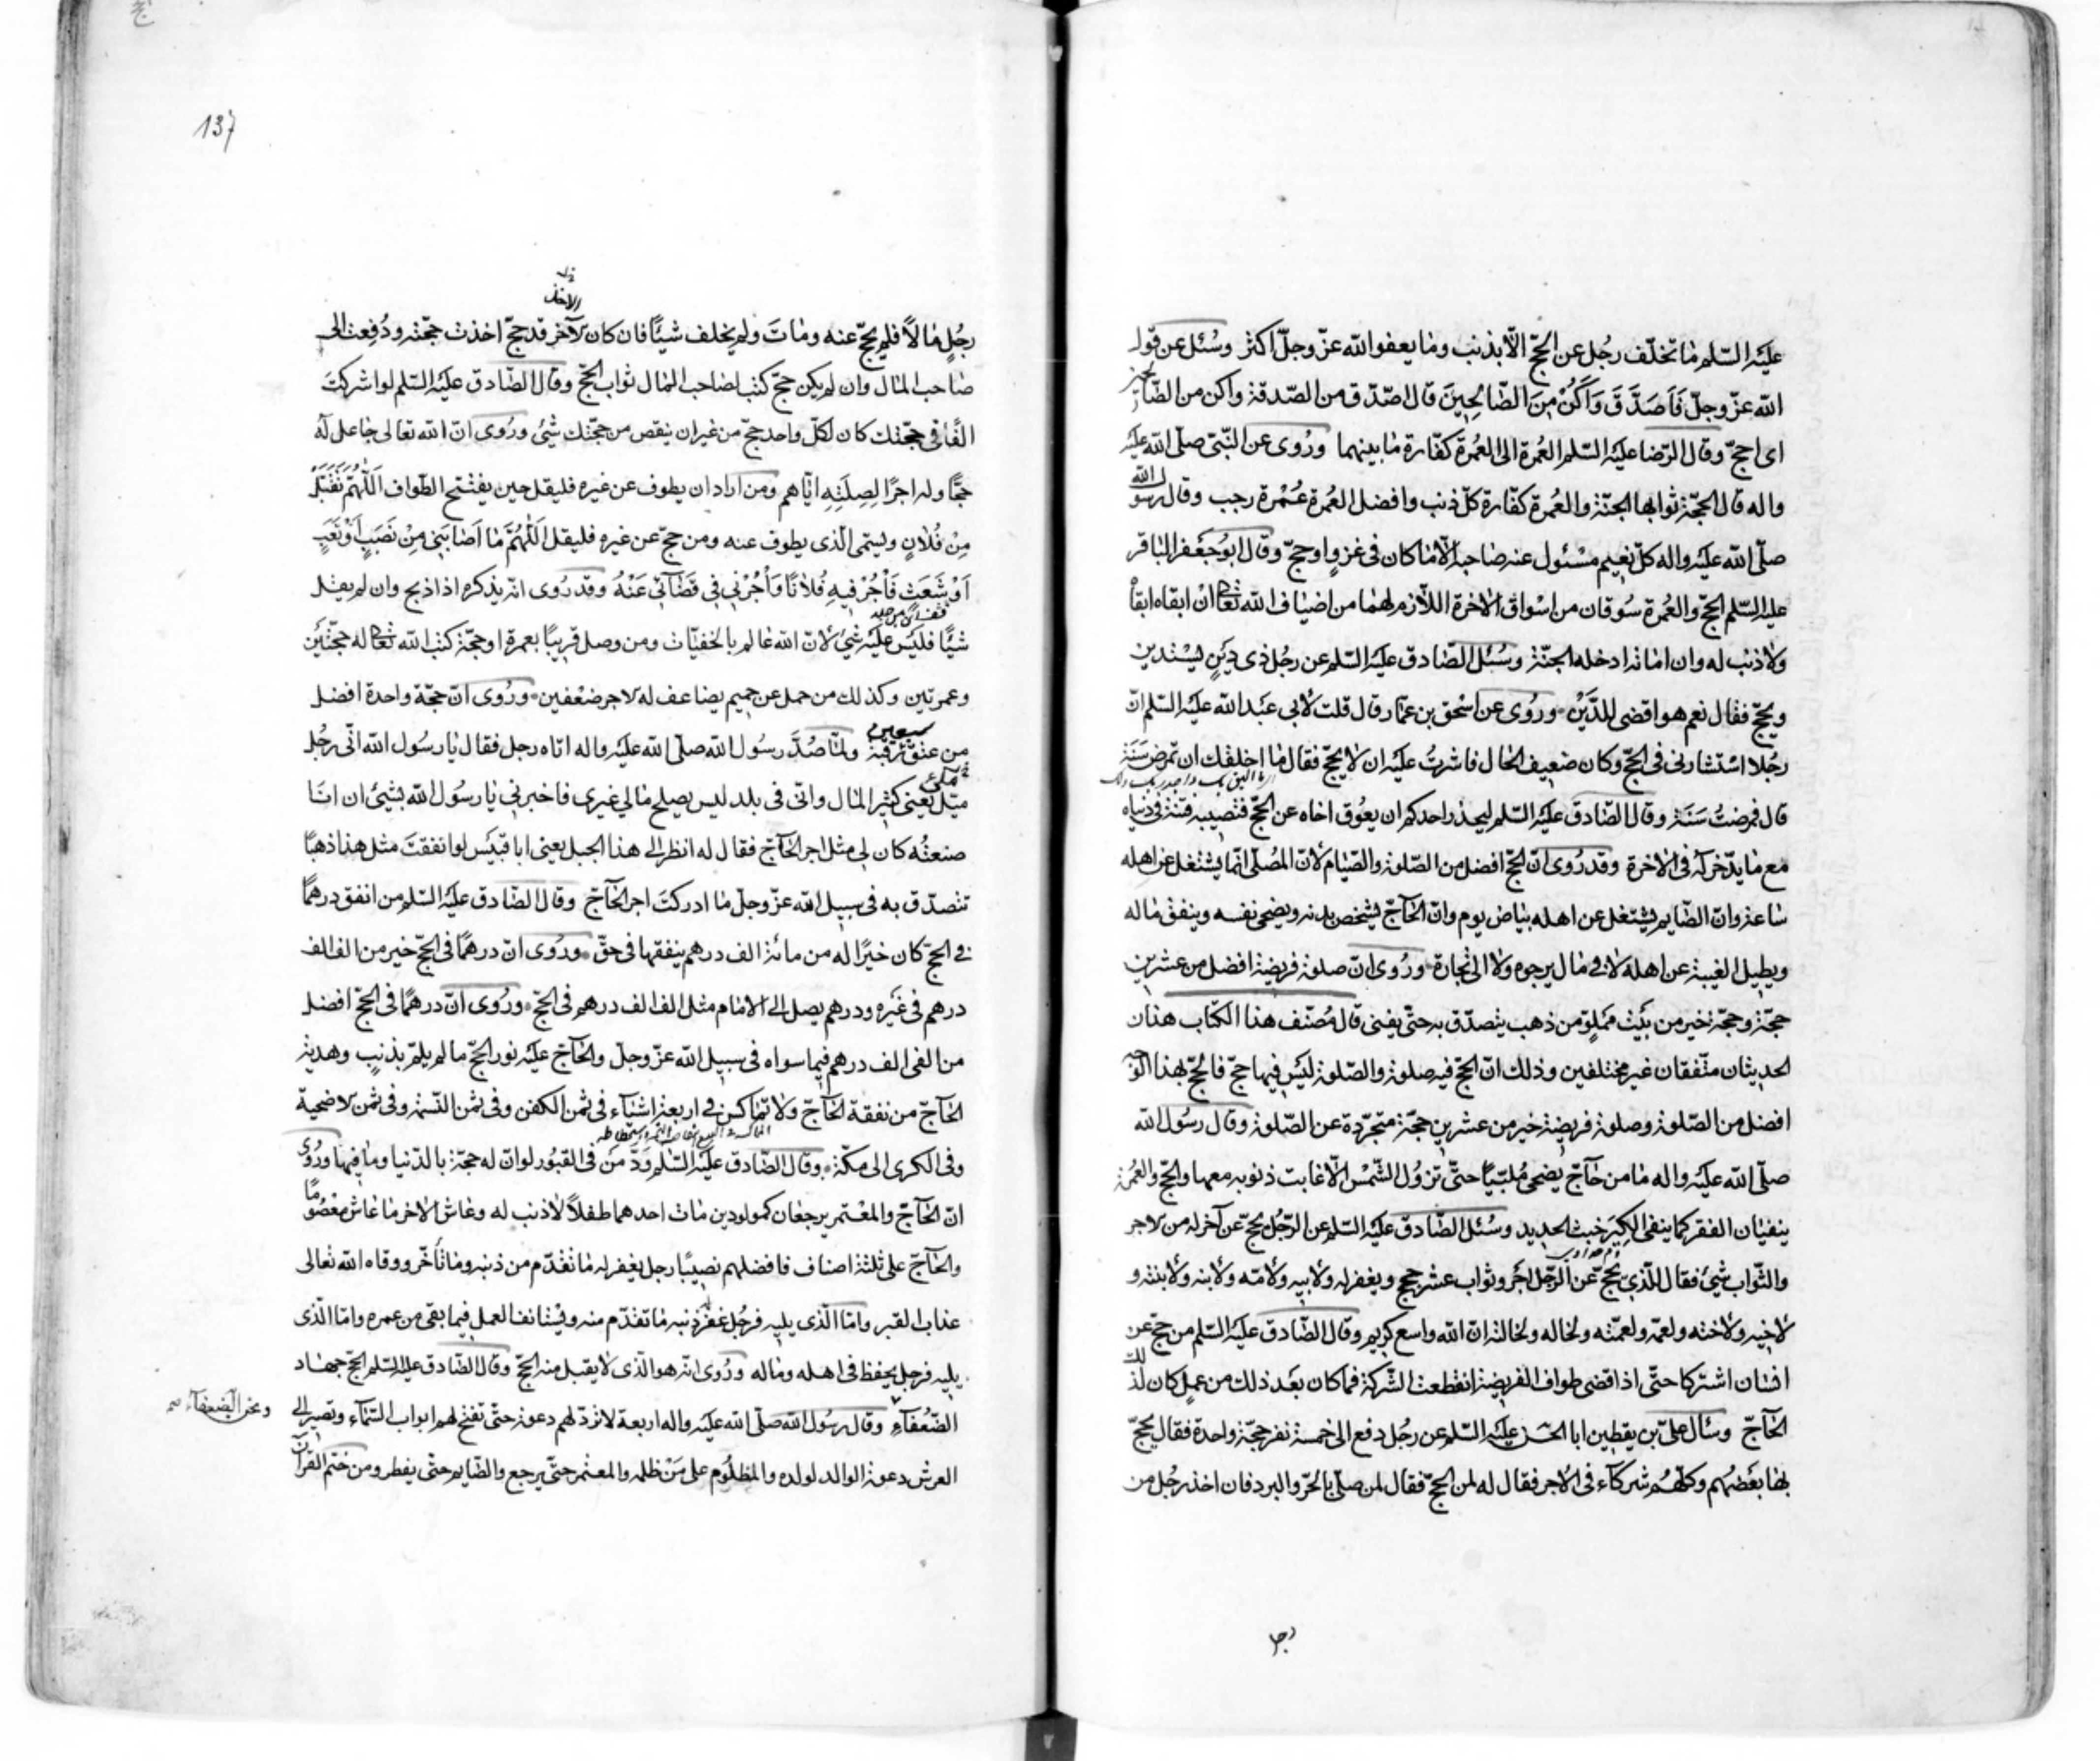 عليه السّلم ما تخلّف رجُل عن الحجّ الّا بذنب وما يعفوا الله عزّ وجلّ اكثر وسُئل عن قول
الله عزّ وجلّ فَاَصَدَّقَ وَاَكُنْ مِنَ الصَّالِحِينَ قال اصّدّق من الصّدقة واكن من الصّالحين
اى احجّ وقال الرّضا عليه السّلم العُمرة الى العُمرة كفّارة ما بينهما ورُوى عن النّبىّ صلّى الله عليه
واله قال الحجّة ثوابها الجنّة والعُمرة كفّارة كلّ ذنب وافضل العُمرة عُمْرة رجب وقال رسول الله
صلّى الله عليه واله كلّ نعيم مسْئول عنه صاحبه الّا ما كان فى غزوٍ او حجّ وقال ابو جعفر الباقر
عليه السّلم الحجّ والعُمرة سُوقان من اسْواق الاخرة اللّازم لهما من اضياف الله تعالى ان ابقاه ابقاه
ولا ذنب له وان اماته ادخله الجنّة وسُئل الصّادق عليه السّلم عن رجُل ذى دَينٍ يستدين
ويحجّ فقال نعم هو اقضى للدَّيْن ورُوى عن اسْحق بن عمّار قال قلت لابى عبد الله عليه السّلم انّ
رجُلا اسْتشارنى فى الحجّ وكان ضعيف الحال فاشرتُ عليه ان لا يحجّ فقال ما اخلقك ان تمرض سَنَة
قال فمرضتُ سَنَة وقال الصّادق عليه السّلم ليحذر احدكم ان يعُوق اخاه عن الحجّ فتصيبه فتنة فى دنياه
مع ما يدّخر له فى الاخرة وقد رُوى انّ الحجّ افضل من الصّلوة والصّيام لانّ المُصلّى انّما يشتغل عن اهله
ساعة وانّ الصّايم يشتغل عن اهله بياض يوم وانّ الحآجّ يشخص بدنه ويضحى نفسه وينفق ماله
ويطيل الغيبة عن اهله لا فى مال يرجوه ولا الى تجارة ورُوى انّ صلوة فريضة افضل من عشرين
حجّة وحجّة خير من بيت مملوّ من ذهب يتصدّق به حتّى يفنى قال مُصنّف هذا الكتاب هذان
الحديثان متّفقان غير مختلفين وذلك انّ الحجّ فيه صلوة والصّلوة ليس فيها حجّ فالحجّ بهذا الوجه
افضل من الصّلوة وصلوة فريضة خير من عشرين حجّة متجرّدة عن الصّلوة وقال رسُول الله
صلّى الله عليه واله ما من حآجّ يضحى مُلبّيًا حتّى تزُول الشّمْس الّا غابت ذنوبه معها والحجّ والعُمرة
ينفيان الفقر كما ينفى الكير خبث الحديد وسُئل الصّادق عليه السّلم عن الرّجُل يحجّ عن آخر له من الاجر
والثّواب شىء فقال للّذى يحجّ عن الرّجل اجْر وثواب عشر حجج ويغفر له ولابيه ولامّه ولابنه ولابنته و
لاخيه ولاخته ولعمّه ولعمّته ولخاله ولخالته انّ الله واسع كريم وقال الصّادق عليه السّلم من حجّ عن
انسان اشتركا حتّى اذا قضى طواف الفريضة انقطعت الشّركة فما كان بعد ذلك من عمل كان لذلك
الحآجّ وسأل علىّ بن يقطين ابا الحسن عليه السّلم عن رجُل دفع الى خمسة نفر حجّة واحدة فقال يحجّ
بها بعْضُهم وكلّهُم شركآء فى الاجر فقال له لمن الحجّ فقال لمن صلّى بالحرّ والبرد فان اخذ رجُل من
رجل
137
الاخذ
رجُلٍ مالاً فلم يحجّ عنه وماتَ ولم يخلف شيئًا فان كان الآخر قد حجّ اخذت حجّته ودُفعت الى
صاحب المال وان لم يكن حجّ كتب لصاحب المال ثواب الحجّ وقال الصّادق عليه السّلم لو اشركتَ
الفًا فى حجّتك كان لكلّ واحد حجّ من غير ان ينقص من حجّتك شىء ورُوى انّ الله تعالى جاعل له
حجًّا وله اجرًا لِصِلَتِهِ ايّاهم ومن اراد ان يطوف عن غيره فليقل حين يفتتح الطّواف اَللّهُمَّ تَقَبَّلْ
مِنْ فُلانٍ ويسمّى الّذى يطوف عنه ومن حجّ عن غيره فليقل اَللّهُمَّ مَا اَصَابَنِى مِنْ نَصَبٍ اَوْ تَعَبٍ
اَوْ شَعَثٍ فَأْجُرْ فِيهِ فُلانًا وَأْجُرْنِى فِى قَضَآئِى عَنْهُ وقد رُوى انّه يذكره اذا ذبح وان لم يقل
شيئًا فليس عليه شىء لانّ الله عالم بالخفيّات ومن وصل قريبًا بعمرة او حجّة كتب الله تعالى له حجّتين
وعمرتين وكذلك من حمل عن حميم يضاعف له الاجر ضعفين ورُوى انّ حجّة واحدة افضل
من عتق سبعين رقبة ولمّا صُدَّ رسُول الله صلّى الله عليه واله اتاه رجل فقال يا رسُول الله انّى رجُل
ميّل يعنى كثير المال وانّى فى بلد ليس يصلح مالى غيرى فاخبرنى يا رسُول الله بشىء ان انا
صنعتُه كان لى مثل اجر الحآجّ فقال له انظر الى هذا الجبل يعنى ابا قبيس لو انفقتَ مثل هذا ذهبًا
تتصدّق به فى سبيل الله عزّ وجلّ ما ادركتَ اجر الحآجّ وقال الصّادق عليه السّلم من انفق درهمًا
فى الحجّ كان خيرًا له من مائة الف درهم ينفقها فى حقّ ورُوى انّ درهمًا فى الحجّ خير من الف الف
درهم فى غيره ودرهم يصل الى الامام مثل الف الف درهم فى الحجّ ورُوى انّ درهمًا فى الحجّ افضل
من الفى الف درهم فيما سواه فى سبيل الله عزّ وجلّ والحآجّ عليه نور الحجّ ما لم يلمّ بذنبٍ وهديّة
الحآجّ من نفقة الحآجّ ولا تماكس فى اربعة اشيآء فى ثمن الكفن وفى ثمن النّسمة وفى ثمن الاضحيّة
وفى الكرى الى مكّة وقال الصّادق عليه السّلم ودّ من فى القبُور لو انّ له حجّة بالدّنيا وما فيها ورُوى
انّ الحآجّ والمعْتمر يرجعان كمولودين مات احدهما طفلاً لا ذنب له وعاش الاخر ما عاش معصُومًا
والحآجّ على ثلثة اصناف فافضلهم نصيبًا رجل يغفر له ما تقدّم من ذنبه وما تأخّر ووقاه الله تعالى
عذاب القبر وامّا الّذى يليه فرجُل غفر ذنبه ما تقدّم منه ويستانف العمل فيما بقى من عمره وامّا الّذى
يليه فرجل يحفظ فى اهله وماله ورُوى انّه هو الّذى لا يقبل منه الحجّ وقال الصّادق عليه السّلم الحجّ جهاد
الضّعُفآء وقال رسُول الله صلّى الله عليه واله اربعة لا تردّ لهم دعوة حتّى تفتح لهم ابواب السّمآء وتصير الى
ونحن الضعفآء صح
العرش دعوة الوالد لولده والمظلُوم على مَنْ ظلمه والمعتمر حتّى يرجع والصّايم حتّى يفطر ومن ختم القرآن